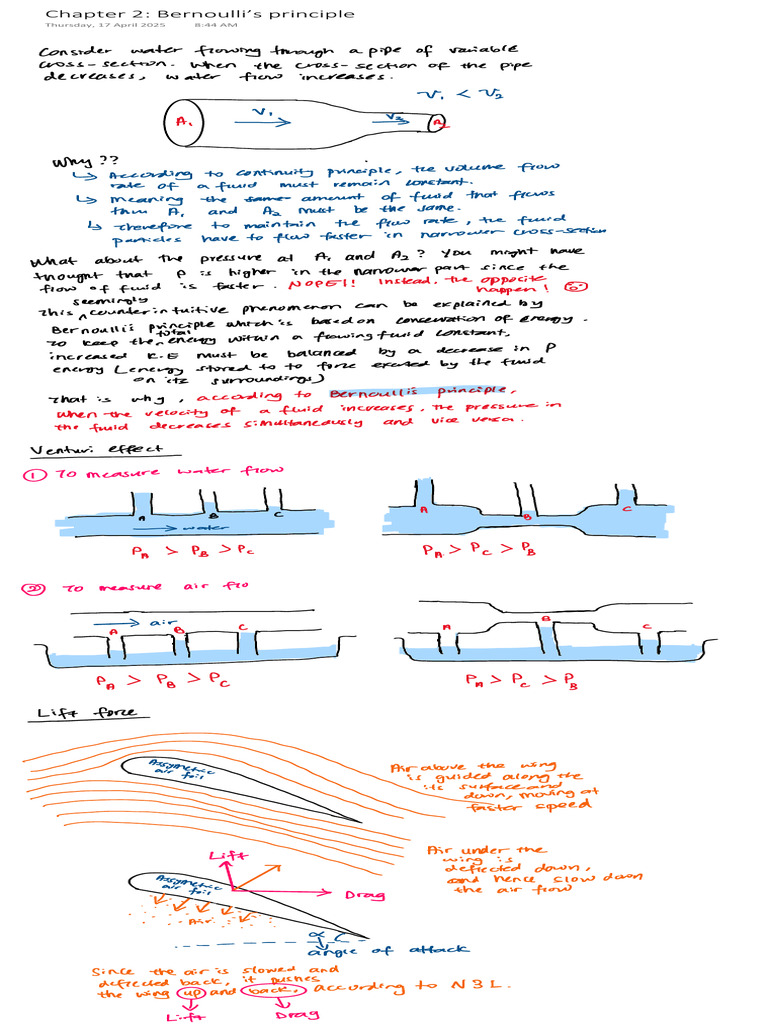 Chapter 2: Bernoulli's principle
Thursday, 17 April 2025 8:44 AM
Consider water flowing through a pipe of variable
cross-section. When the cross-section of the pipe
decreases, water flow increases.
V₁ < V₂
A₁ V₁ V₂ A₂
Why??
↳ According to continuity principle, the volume flow
rate of a fluid must remain constant.
↳ Meaning the same amount of fluid that flows
thru A₁ and A₂ must be the same.
↳ Therefore to maintain the flow rate, the fluid
particles have to flow faster in narrower cross-section
What about the pressure at A₁ and A₂? You might have
thought that P is higher in the narrower part since the
flow of fluid is faster. NOPE!! Instead, the opposite
happen!
seemingly
This counterintuitive phenomenon can be explained by
Bernoulli's principle which is based on conservation of energy.
total
To keep the energy within a flowing fluid constant,
increased K.E must be balanced by a decrease in P
energy (energy stored to to force exerted by the fluid
on its surroundings)
That is why, according to Bernoulli's principle,
when the velocity of a fluid increases, the pressure in
the fluid decreases simultaneously and vice versa.
Venturi effect
① To measure water flow
A B C
water
P_A > P_B > P_C
A B C
P_A > P_C > P_B
② To measure air flo
air
A B C
P_A > P_B > P_C
A B C
P_A > P_C > P_B
Lift force
Assymetric
air foil
Air above the wing
is guided along the
its surface and
down, moving at
faster speed
Air under the
wing is
deflected down,
and hence slow down
the air flow
Lift
Assymetric
air foil
Drag
Air
α
angle of attack
Since the air is slowed and
deflected back, it pushes
the wing up and back, according to N3L.
Lift Drag